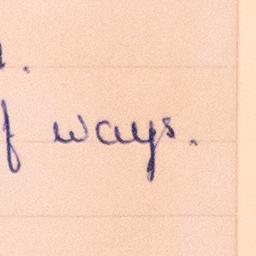 f ways.